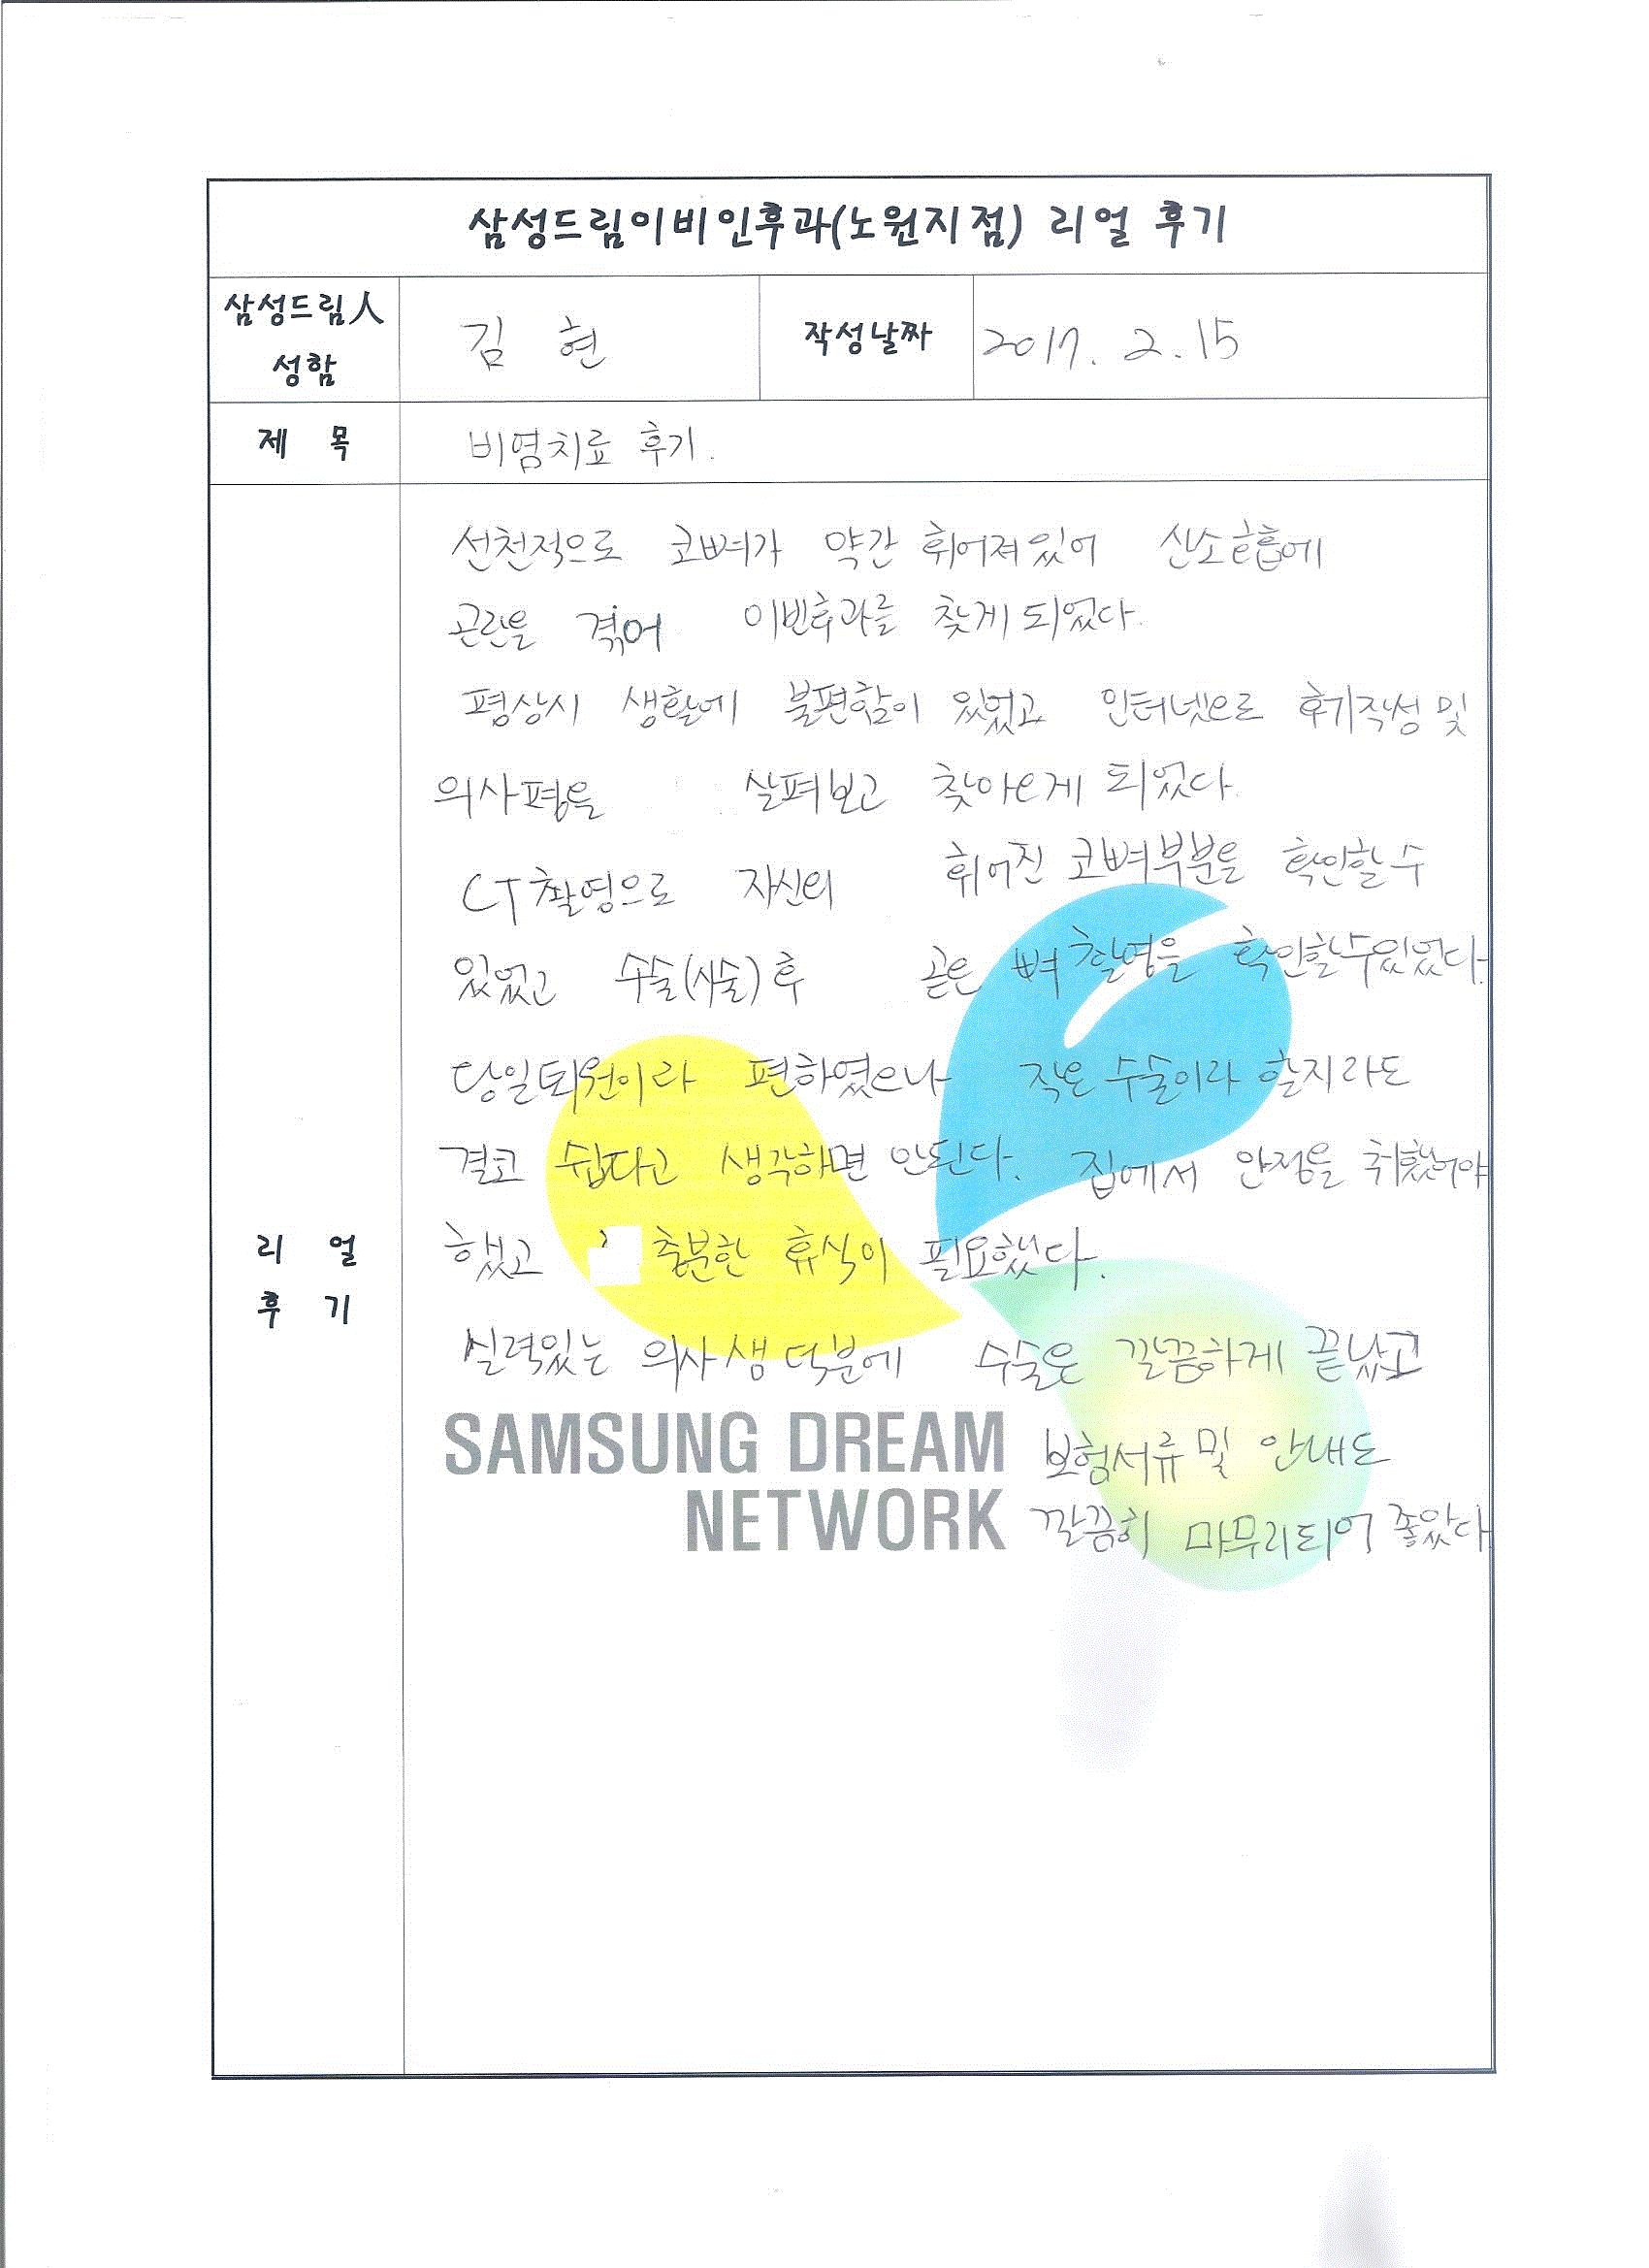 삼성드림이비인후과(노원지점) 리얼 후기
삼성드림人
성함
김 현
작성날짜
2017. 2. 15
제 목
비염치료 후기.
리 얼
후 기
선천적으로 코뼈가 약간 휘어져있어 산소흡에
곤란을 겪어 이빈후과를 찾게 되었다.
평상시 생활에 불편함이 있었고 인터넷으로 후기작성 및
의사평을 살펴보고 찾아오게 되었다.
CT촬영으로 자신의 휘어진 코뼈부분을 확인할 수
있었고 수술(시술)후 곧은 뼈 촬영을 확인할수있었다.
당일퇴원이라 편하였으나 작은 수술이라 할지라도
결코 쉽다고 생각하면 안된다. 집에서 안정을 취했어야
했고 충분한 휴식이 필요했다.
실력있는 의사샘 덕분에 수술은 깔끔하게 끝났고
보험서류 및 안내도
깔끔히 마무리되어 좋았다
SAMSUNG DREAM
NETWORK